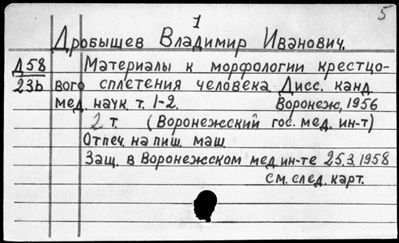 5
1
Дробышев Владимир Иванович.
Д58 Материалы к морфологии крестцо-
23ь вого сплетения человека. Дисс. канд.
мед. наук т. 1-2. Воронеж, 1956
2 т. (Воронежский гос. мед. ин-т)
Отпеч. на пиш. маш
Защ. в Воронежском мед. ин-те 25.3.1958
См. след. карт.